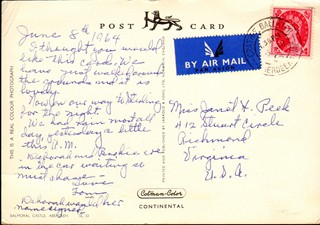 POST CARD
June 8th 1964
I thought you would
like this card. We
have just walked around
the grounds and it is
lovely.
You're on our way to
for the night.
We had rain most all
day yesterday a little
this A.M.
Deborah and are
in the car waiting so
must change
Love
Deborah wanted her
name signed
BY AIR MAIL
PAR AVION
Miss Janet H. Peek
412 Stuart Circle
Richmond
Virginia
U.S.A.
THIS IS A REAL COLOUR PHOTOGRAPH
Cotman-Color
CONTINENTAL
BALMORAL CASTLE, ABERDEEN